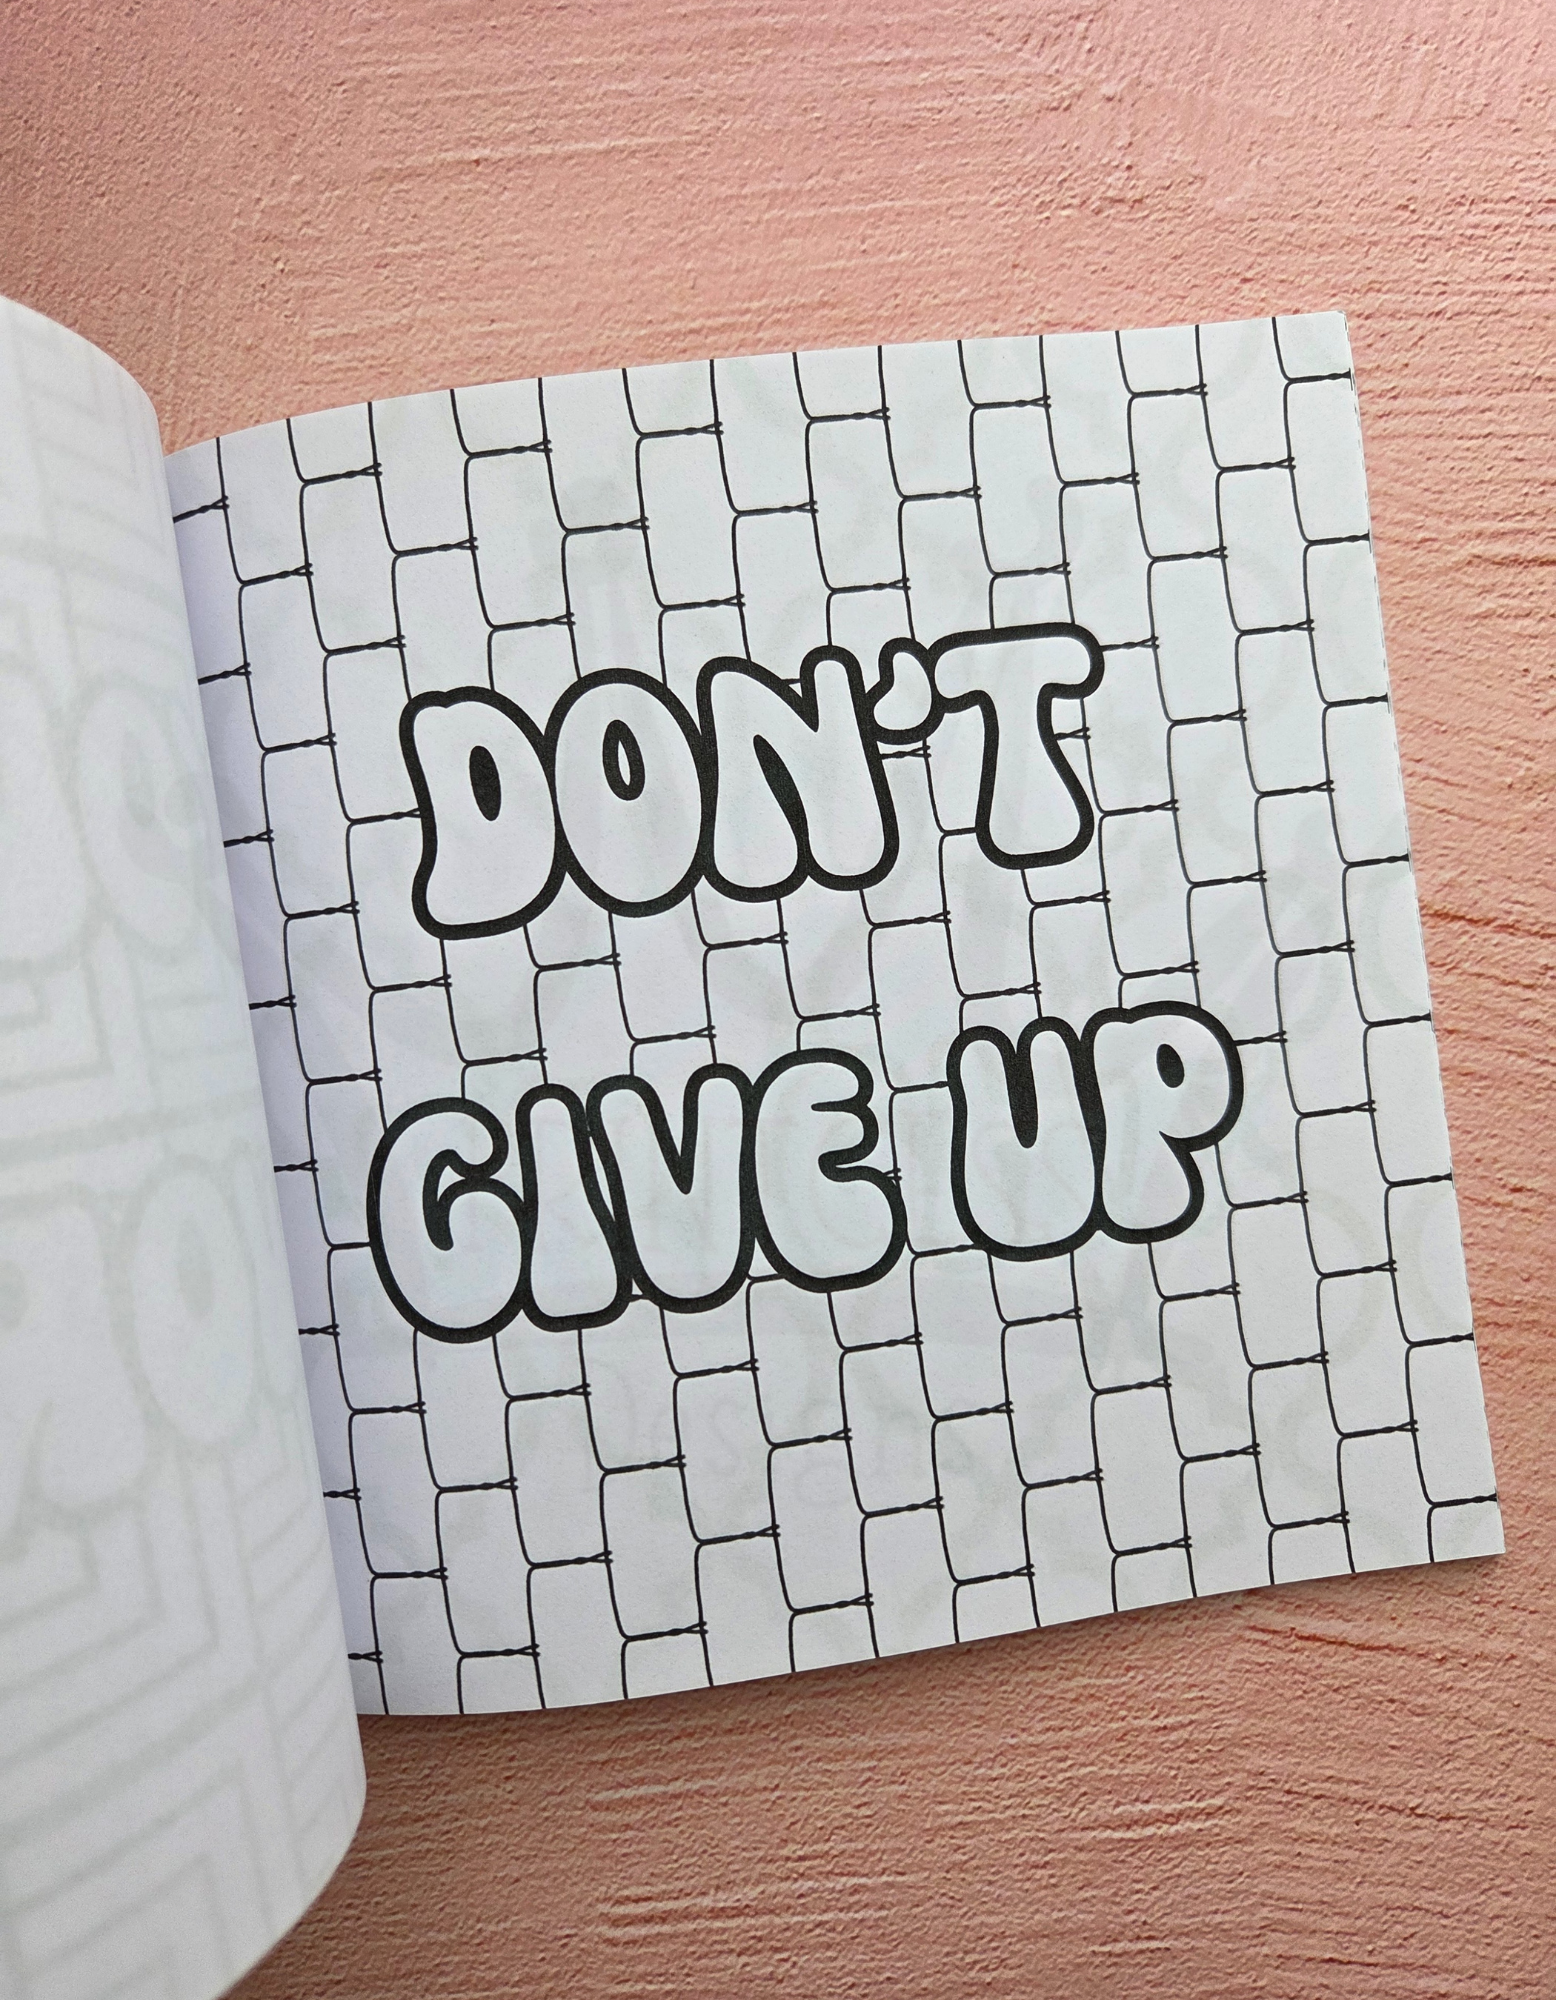 DON'T
GIVE UP